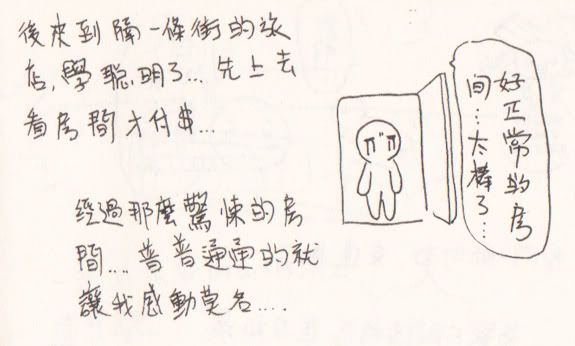 後來到隔一條街的旅
店,學聰明了...先上去
看房間才付$...
好正常的房
間...太棒了...
經過那麼驚悚的房
間....普普通通的就
讓我感動莫名....